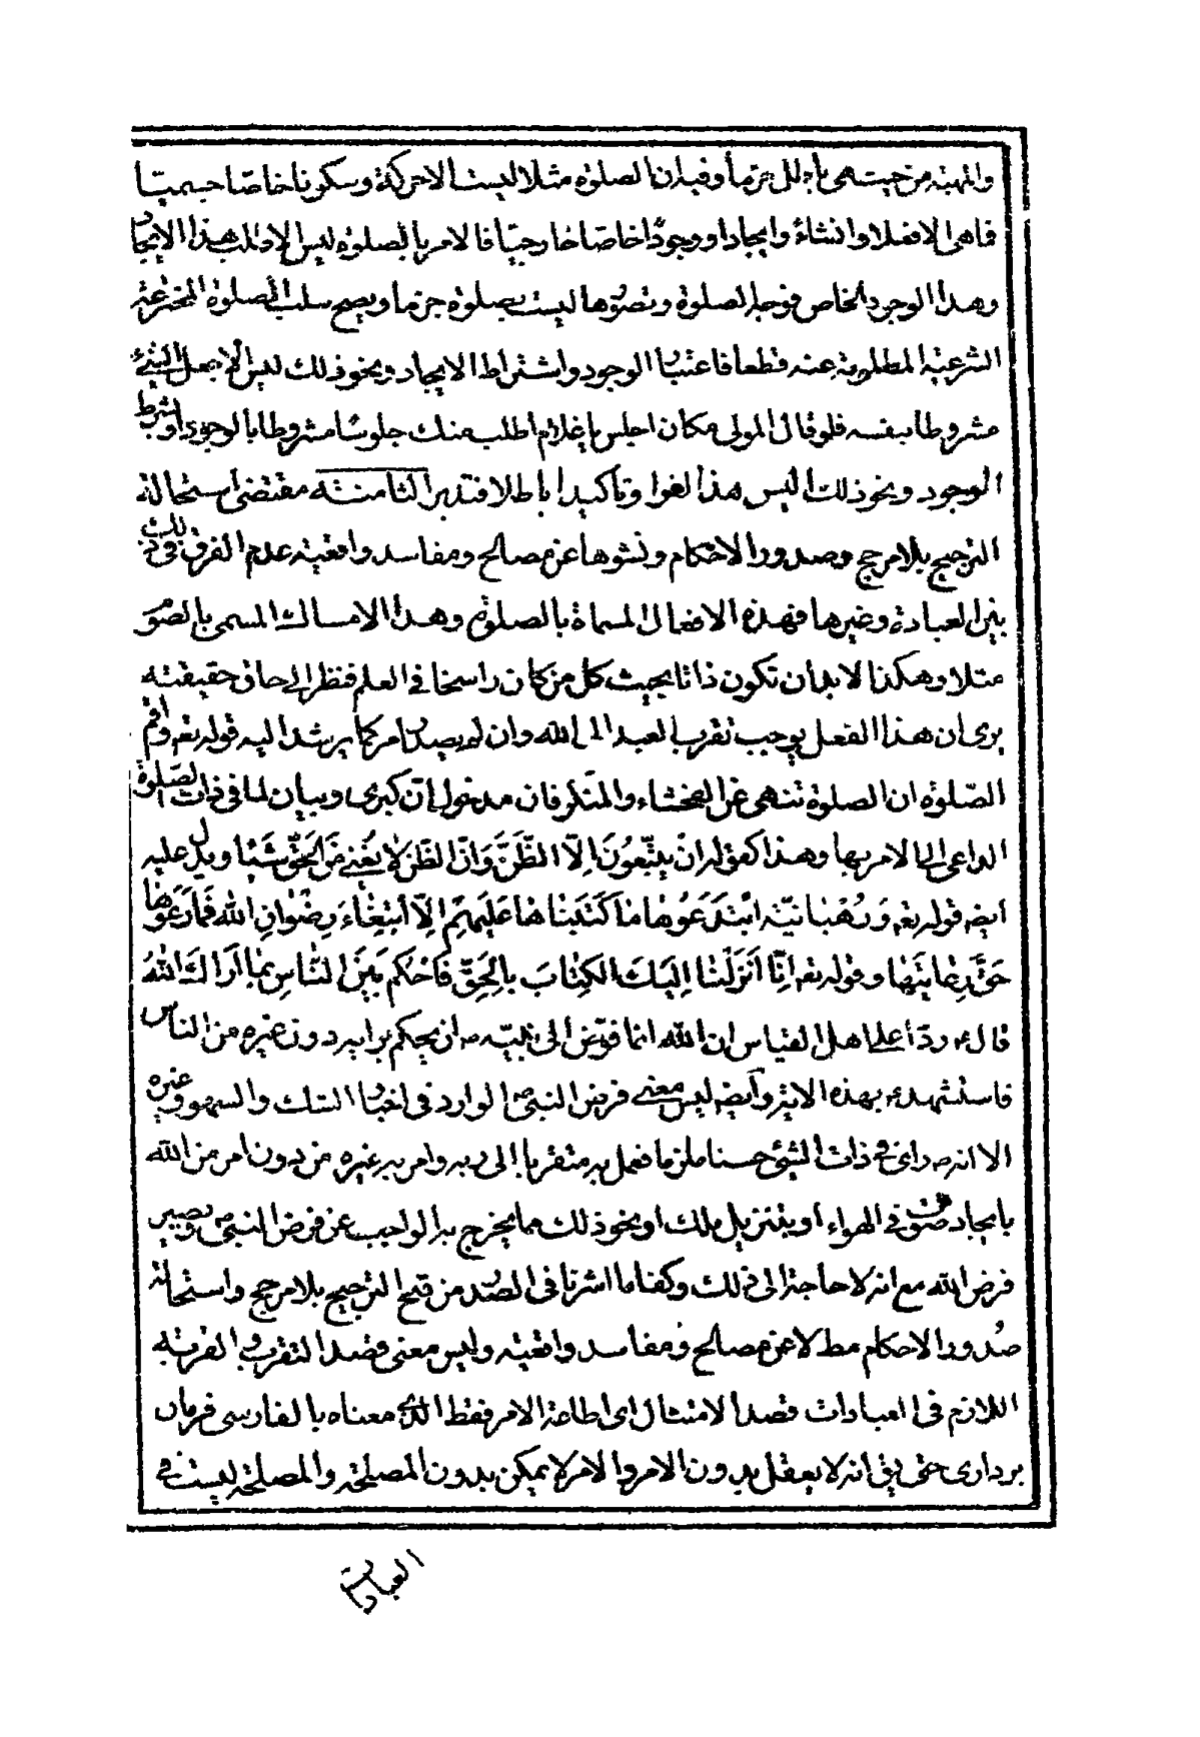 والمهية من حيث هى باطل جزما وفيه ان الصلوة مثلا ليست الا حركة وسكونا خاصا جسميتا
فما هى الا فعلا وانشاءً وايجادا ووجودًا خاصا خارجيّا فالامر بالصلوة ليس الا طلب هذا الايجاد
وهذا الوجود الخاص فوجه الصلوة وتصوّرها ليست بصلوة جزما ويصح سلب الصلوة المخترعة
الشرعية المطلوبة عنه قطعا فاعتبار الوجود واشتراط الايجاد ونحو ذلك ليس الا جعل الشئ
مشروطا بنفسه فلو قال المولى مكان اجلس يا غلام اطلب منك جلوسًا مشروطا بالوجود او بشرط
الوجود ونحو ذلك اليس هذا لغوا وتأكيدا باطلا فتدبر الثامنة انه مقتضى استحالة
الترجيح بلا مرجح وصدور الاحكام ونشوها عن مصالح ومفاسد واقعية عدم الفرق فى ذلك
بين العبادة وغيرها فهذه الافعال المسماة بالصلوة وهذا الامساك المسمى بالصوم
مثلا وهكذا لا بد ان تكون ذاتا بحيث كل من كان راسخا فى العلم فنظر الى حاق حقيقته
يرى ان هذا الفعل يوجب تقرب العبد الى الله وان لم يصدر امر كما يرشد اليه قوله تعه واقم
الصّلوة ان الصلوة تنهى عن الفحشاء والمنكر فان مدخول انّ كبرى وبيان لما فى ذات الصّلوة
الداعى الى الامر بها وهذا كقوله انْ يَتَّبِعُونَ اِلاّ الظَّنَّ وَانَّ الظَّنَ لاٰ يُغْنِى مِنَ الحَقِّ شَيْئا ويدل عليه
ايضه قوله تعه وَرَهْبٰانِيّة ابْتَدَعُوهٰا مٰا كَتَبْنٰاهٰا عَلَيْهِمْ اِلاّ ابْتِغٰاءَ رِضْوٰانِ الله فَمٰا رَعَوْهٰا
حَقَّ رِعٰايَتِهٰا وقوله تعه اِنّا اَنْزَلْنٰا اِلَيْكَ الكِتٰابَ بِالْحَقِّ فَاحْكُم بَيْنَ النّاسِ بِمٰا اَرٰاكَ اللهُ
قال ع ردّا على اهل القياس ان الله انما فوّض الى نبيّه ص ان يحكم برايه دون غيره من الناس
فاستشهد ع بهذه الاية وايضه ليس معنى فرض النبى ص الوارد فى اخبار الشك والسهو وغيره
الا انه ص راى فى ذات الشئ حسنا ملزما فعمل به متقربا الى ربه وامر به غيره من دون امر من الله
بايجاد صوت فى الهواء او بتنزيل ملك او نحو ذلك مما يخرج به الواجب عن فرض النبى ص ويصير
فرض الله مع انه لا حاجة الى ذلك وكفانا ما اشرنا فى الصّدر من قبح الترجيح بلا مرجح واستحالة
صُدور الاحكام مط لا عن مصالح ومفاسد واقعية وليس معنى قصد التقرب و القربة
اللازم فى العبادات قصد الامتثال اى اطاعة الامر فقط الذى معناه بالفارسى فرمان
بردارى حتى يق انه لا يعقل بدون الامر والامر لا يمكن بدون المصلحة والمصلحة ليست فى
العبادات